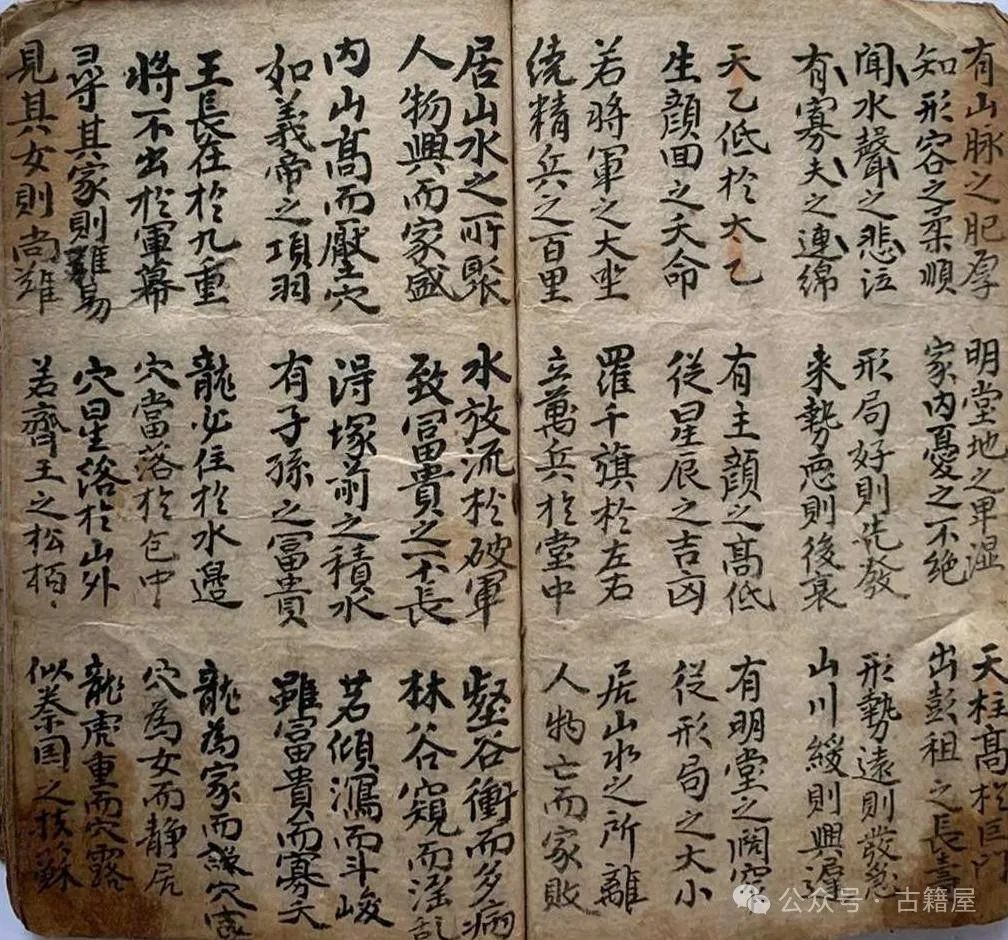 有山脉之肥厚
知形容之柔順
明堂地之卑濕
家内憂之不絶
天柱高於巨門
出彭祖之長壽
聞水聲之悲泣
有寡夫之連綿
形局好則先發
来勢惡則後衰
形勢遠則發怠
山川緩則興遲
天乙低於太乙
生顔回之夭命
有主顔之高低
從星辰之吉凶
有明堂之闊窄
從形局之大小
若將軍之大坐
繞精兵之百里
羅千旗於左右
立萬兵於堂中
居山水之所離
人物亡而家敗
居山水之所聚
人物興而家盛
水放流於破軍
致冨貴之不長
壑谷衝而多病
林谷窺而淫乱
内山高而壓穴
如義帝之項羽
得塚前之積水
有子孫之冨貴
若傾瀉而斗峻
雖冨貴而寡夭
王長在於九重
將不出於軍幕
龍必住於水邊
穴當落於包中
龍為家而謙
穴為女而靜居
尋其家則難易
見其女則尚難
穴星落於山外
若齊王之松栢
龍虎重而穴露
似秦国之扶蘇
公众号·古籍屋